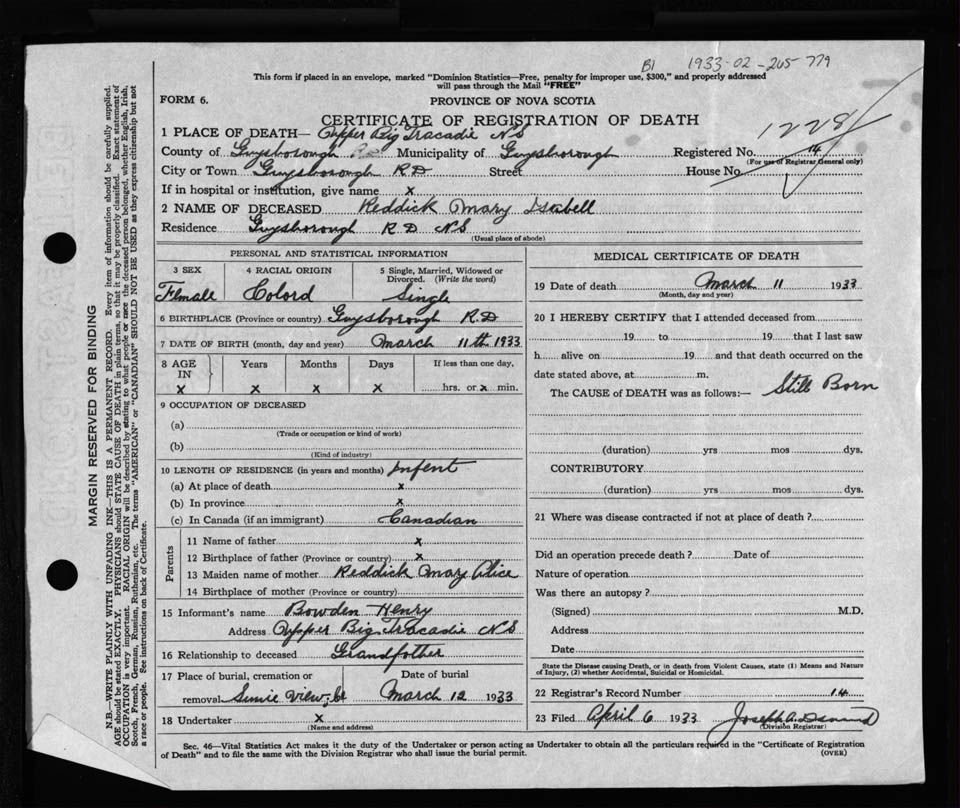 B1 1933-02-265 779
This form if placed in an envelope, marked "Dominion Statistics—Free, penalty for improper use, $300," and properly addressed
will pass through the Mail "FREE"
FORM 6. PROVINCE OF NOVA SCOTIA
CERTIFICATE OF REGISTRATION OF DEATH
1228
1 PLACE OF DEATH— Upper Big Tracadie NS
County of Guysborough Municipality of Guysborough Registered No. 14
(For use of Registrar General only)
City or Town Guysborough RD Street House No.
If in hospital or institution, give name x
2 NAME OF DECEASED Reddick Mary Isabell
Residence Guysborough RD NS
(Usual place of abode)
PERSONAL AND STATISTICAL INFORMATION
3 SEX 4 RACIAL ORIGIN 5 Single, Married, Widowed or
Divorced. (Write the word)
Flmale Colord Single
6 BIRTHPLACE (Province or country) Guysborough RD
7 DATE OF BIRTH (month, day and year) March 11th 1933
8 AGE IN Years Months Days If less than one day,
x x x x hrs. or x min.
9 OCCUPATION OF DECEASED
(a)
(Trade or occupation or kind of work)
(b)
(Kind of industry)
10 LENGTH OF RESIDENCE (in years and months) Infent
(a) At place of death x
(b) In province x
(c) In Canada (if an immigrant) Canadian
Parents
11 Name of father x
12 Birthplace of father (Province or country) x
13 Maiden name of mother Reddick Mary Alice
14 Birthplace of mother (Province or country)
15 Informant's name Bowden Henry
Address Upper Big Tracadie NS
16 Relationship to deceased Grandfother
17 Place of burial, cremation or Date of burial
removal View, March 12 1933
18 Undertaker x
(Name and address)
MEDICAL CERTIFICATE OF DEATH
19 Date of death March 11 1933
(Month, day and year)
20 I HEREBY CERTIFY that I attended deceased from
19 to 19 that I last saw
h alive on 19 and that death occurred on the
date stated above, at m.
The CAUSE of DEATH was as follows:— Still Born
(duration) yrs mos dys.
CONTRIBUTORY
(duration) yrs mos dys.
21 Where was disease contracted if not at place of death?
Did an operation precede death? Date of
Nature of operation
Was there an autopsy?
(Signed) M.D.
Address
Date
State the Disease causing Death, or in death from Violent Causes, state (1) Means and Nature
of Injury, (2) whether Accidental, Suicidal or Homicidal.
22 Registrar's Record Number 14
23 Filed April 6 1933 Joseph A.
(Division Registrar)
Sec. 46—Vital Statistics Act makes it the duty of the Undertaker or person acting as Undertaker to obtain all the particulars required in the "Certificate of Registration
of Death" and to file the same with the Division Registrar who shall issue the burial permit. (OVER)
MARGIN RESERVED FOR BINDING
N.B.—WRITE PLAINLY WITH UNFADING INK—THIS IS A PERMANENT RECORD. Every item of information should be carefully supplied.
AGE should be stated EXACTLY. PHYSICIANS should STATE CAUSE OF DEATH in plain terms, so that it may be properly classified. Exact statement of
OCCUPATION is very important. RACIAL ORIGIN will be described by stating to what people or race the deceased person belonged, whether English, Irish,
Scotch, French, German, Russian, Ruthenian, etc. The terms "AMERICAN" or "CANADIAN" SHOULD NOT BE USED as they express citizenship but not
a race or people. See instructions on back of Certificate.